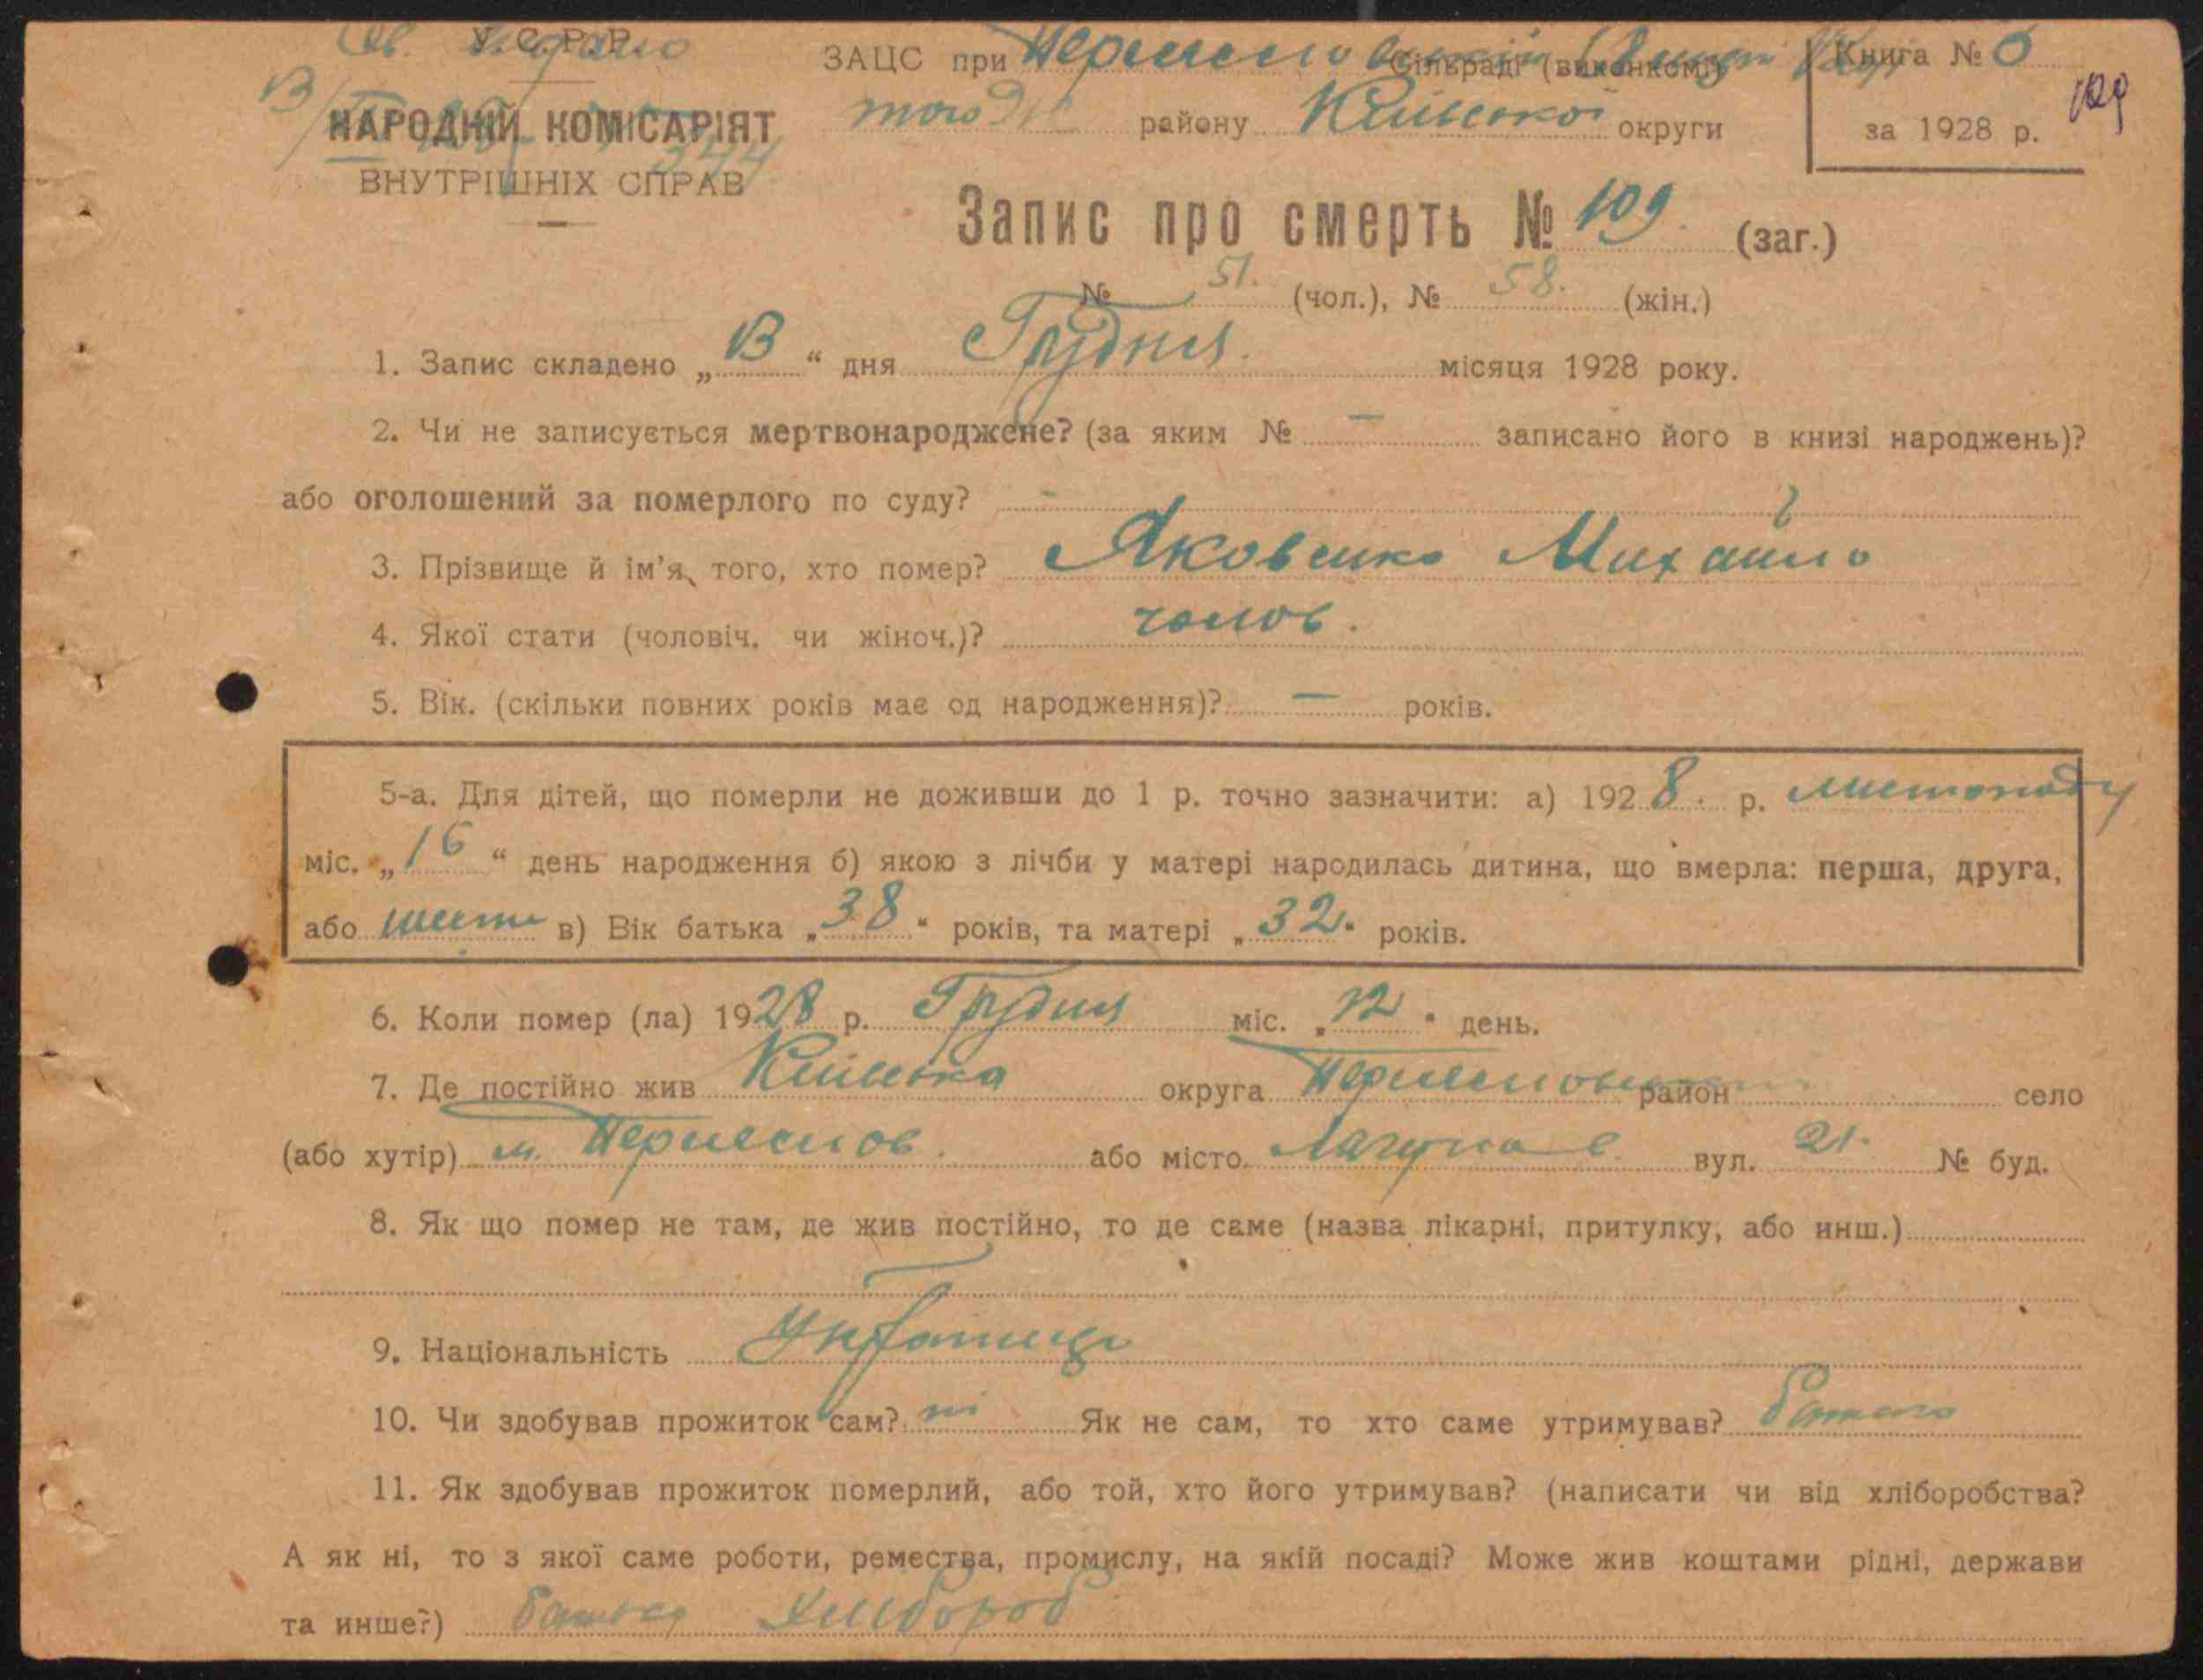 У.С.Р.Р.
НАРОДНІЙ КОМІСАРІЯТ
ВНУТРІШНІХ СПРАВ
344
ЗАЦС при сільраді (виконкомі)
району Київської округи
Книга № 6
за 1928 р.
109
Запис про смерть № 109. (заг.)
№ 51. (чол.), № 58. (жін.)
1. Запис складено „ 13 “ дня Грудня. місяця 1928 року.
2. Чи не записується мертвонароджене? (за яким № — записано його в книзі народжень)?
або оголошений за померлого по суду? -
3. Прізвище й ім'я, того, хто помер? Яковенко Михайло
4. Якої стати (чоловіч. чи жіноч.)? чолов.
5. Вік. (скільки повних років має од народження)? — років.
5-а. Для дітей, що померли не доживши до 1 р. точно зазначити: а) 1928. р. листопаду
міс. „ 16 “ день народження б) якою з лічби у матері народилась дитина, що вмерла: перша, друга,
або шоста в) Вік батька „ 38 “ років, та матері „ 32 “ років.
6. Коли помер (ла) 1928 р. Грудня міс. „ 12 “ день.
7. Де постійно жив Київська округа район село
(або хутір) м. або місто. вул. 21. № буд.
8. Як що помер не там, де жив постійно, то де саме (назва лікарні, притулку, або инш.)
9. Національність Українець
10. Чи здобував прожиток сам? ні Як не сам, то хто саме утримував? батько
11. Як здобував прожиток померлий, або той, хто його утримував? (написати чи від хліборобства?
А як ні, то з якої саме роботи, ремества, промислу, на якій посаді? Може жив коштами рідні, держави
та инше?) батько Хлібороб